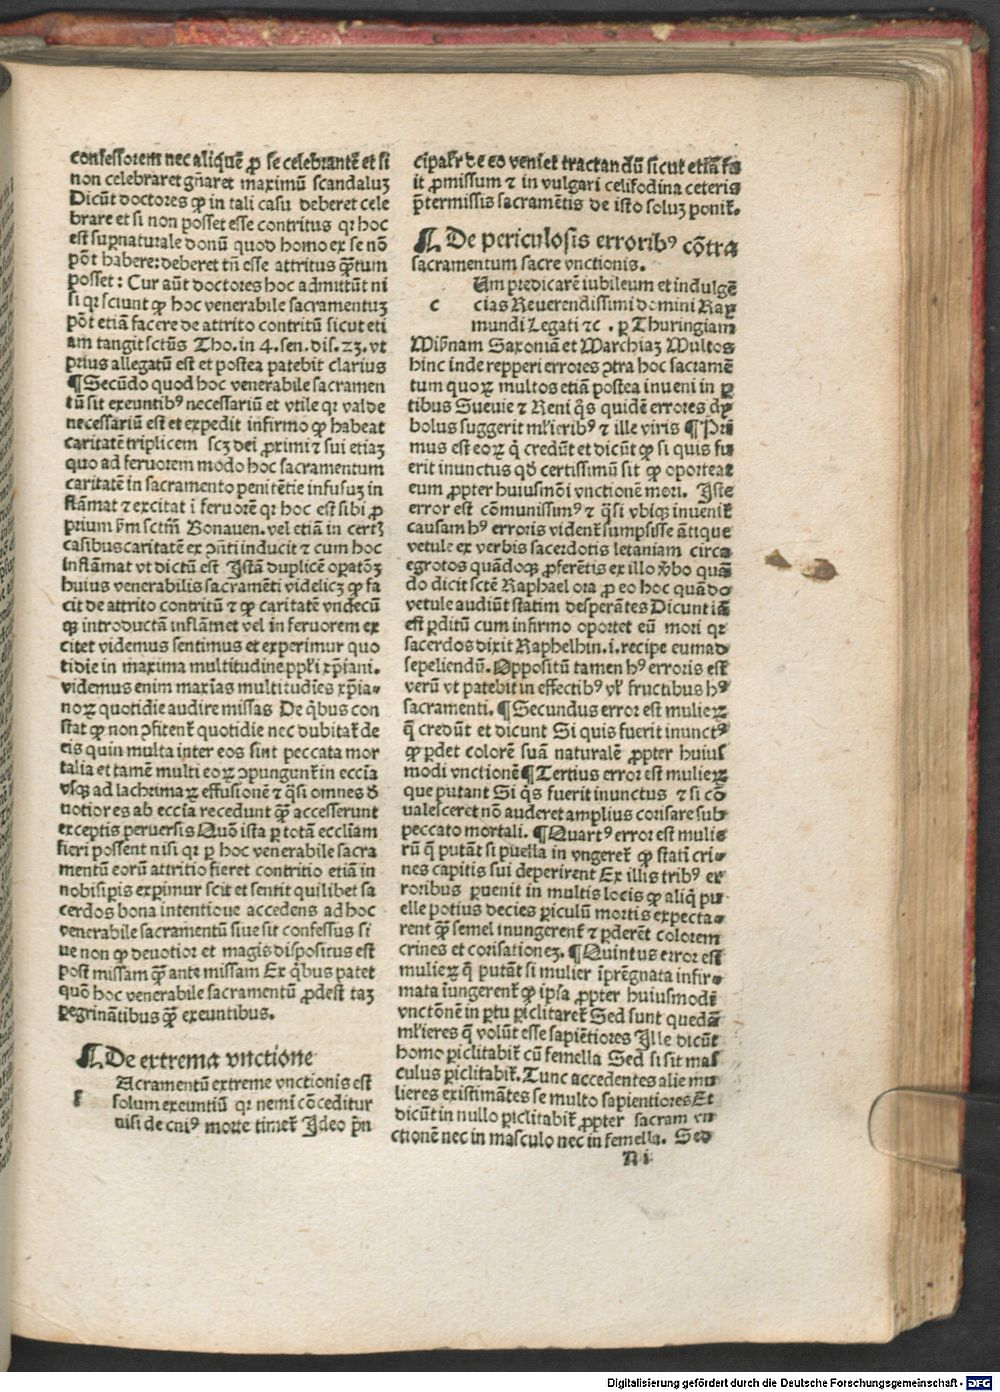 confessorem nec aliquē ꝓ se celebrantē et si
non celebraret gñaret maximū scandaluz
Dicūt doctores ꝙ in tali casu deberet cele
brare et si non posset esse contritus qꝛ hoc
est supꝛnaturale donū quod homo ex se nō
pōt habere: deberet tñ esse attritus q̄ꝫtum
posset : Cur aūt doctores hoc admittūt ni
si qꝛ sciunt ꝙ hoc venerabile sacramentuꝫ
pōt etiā facere de attrito contritū sicut eti
am tangit sctūs Tho. in 4. sen. dis. 23. vt
prius allegatū est et postea patebit clarius
¶ Secūdo quod hoc venerabile sacramen
tū sit exeuntibꝰ necessariū et vtile qꝛ valde
necessariū est et expedit infirmo ꝙ habeat
caritatē triplicem scꝫ dei ꝓximi ⁊ sui etiaꝫ
quo ad feruorem modo hoc sacramentum
caritatē in sacramento penitētie infusuꝫ in
flāmat ⁊ excitat ī feruorē qꝛ hoc est sibi ꝓ
prium ẜm sctm̄ Bonauen. vel etiā in certꝫ
casibus caritatē ex ꝯñti inducit ⁊ cum hoc
inflāmat vt dictū est Istā duplicē oꝑatōꝫ
huius venerabilis sacramēti videlicꝫ ꝙ fa
cit de attrito contritū ⁊ ꝙ caritatē vndecū
qꝫ introductā inflāmet vel in feruorem ex
citet videmus sentimus et experimur quo
tidie in maxima multitudine ppl'i xp̄iani.
videmus enim maxīas multitudīes xp̄ia-
noꝝ quotidie audire missas De q̇bus con
stat ꝙ non ꝯfitent᷑ quotidie nec dubitat᷑ de
eis quin multa inter eos sint peccata mor
talia et tamē multi eoꝝ ꝯpungunt᷑ in eccīa
vsqꝫ ad lachrimaꝝ effusionē ⁊ q̄si omnes d̄
uotiores ab eccīa recedunt q̄ꝫ accesserunt
exceptis peruersis Quō ista ꝑ totā ecclīam
fieri possent nisi qꝛ ꝑ hoc venerabile sacra
mentū eorū attritio fieret contritio etiā in
nobis ip̄is expimur scit et sentit quilibet sa
cerdos bona intentione accedens ad hoc
venerabile sacramentū siue sit confessus si
ue non ꝙ deuotior et magis dispositus est
post missam q̄ꝫ ante missam Ex q̇bus patet
quō hoc venerabile sacramentū ꝓdest taꝫ
ꝑegrinātibus q̄ꝫ exeuntibus.
¶ De extrema vnctione
Acramentū extreme vnctionis est
ſ solum exeuntiū qꝛ nemī cōceditur
nisi de cuiꝰ morte timet᷑ Ideo p̄n
cipalr̄ de eo veniet tractandū sicut etiā fu
it ꝓmissum ⁊ in vulgari celifodina ceteris
p̄termissis sacramētis de isto soluꝫ ponit᷑.
¶ De periculosis erroribꝰ cōtra
sacramentum sacre vnctionis.
Um predicarē iubileum et indulgē
c cias Reuerendissimi domini Ray
mundi Legati ⁊c . ꝑ Thuringiam
Misnam Saxoniā et Marchiaꝫ Multos
hinc inde repperi errores ꝯtra hoc sacramē
tum quoꝝ multos etiā postea inueni in ꝑ
tibus Sueuie ⁊ Reni q̄s quidē errores dy
bolus suggerit ml'ieribꝰ ⁊ ille viris ¶ Pri
mus est eoꝝ q̇ credūt et dicūt ꝙ si quis fu
erit inunctus qd̄ certissimū sit ꝙ oporteat
eum ꝓpter huiusmōi vnctionē mori. Iste
error est cōmunissimꝰ ⁊ q̄si vbiqꝫ inuenit᷑
causam hꝰ erroris vident᷑ sumpsisse ātique
vetule ex verbis sacerdotis letaniam circa
egrotos quādoqꝫ ꝓferētis ex illo v̄bo quā
do dicit sctē Raphael ora ꝓ eo hoc quādo
vetule audiūt statim desperātes Dicunt iā
est ꝑditū cum infirmo oportet eū mori qꝛ
sacerdos dixit Raphelhin. i. recipe eum ad
sepeliendū. Oppositū tamen hꝰ erroris est
verū vt patebit in effectibꝰ vl' fructibus hꝰ
sacramenti. ¶ Secundus error est mulieꝝ
q̄ credūt et dicunt Si quis fuerit inunctꝰ
ꝙ ꝑdet colorē suā naturalē ꝓpter huius
modi vnctionē ¶ Tertius error est mulieꝝ
que putant Si q̇s fuerit inunctus ⁊ si cō
ualesceret nō auderet amplius corisare sub
peccato mortali. ¶ Quartꝰ error est mulie
rū q̄ putāt si puella in vngeret᷑ ꝙ statī cri-
nes capitis sui deperirent Ex illis tribꝰ er
roribus ꝓuenit in multis locis ꝙ aliq̄ pu
elle potius decies ꝑiculū mortis expecta-
rent q̄ꝫ semel inungerent᷑ ⁊ ꝑderēt colorem
crines et corisationeꝫ. ¶ Quintus error est
mulieꝝ q̄ putāt si mulier īpregnata infir-
mata īungerent᷑ ꝙ ip̄sa ꝓpter huiusmodi
vnctōnē in ꝑtu ꝑiclitaret᷑ Sed sunt quedā
ml'ieres q̄ volūt esse sapiētiores Ille dicūt
homo ꝑiclitabit᷑ cū femella Sed si sit mas
culus ꝑiclitabit᷑. Tunc accedentes alie mu
lieres existimātes se multo sapientiores Et
dicūt in nullo ꝑiclitabit᷑ ꝓpter sacram vn
ctionē nec in masculo nec in femella. Sed
N i
Digitalisierung gefördert durch die Deutsche Forschungsgemeinschaft - DFG